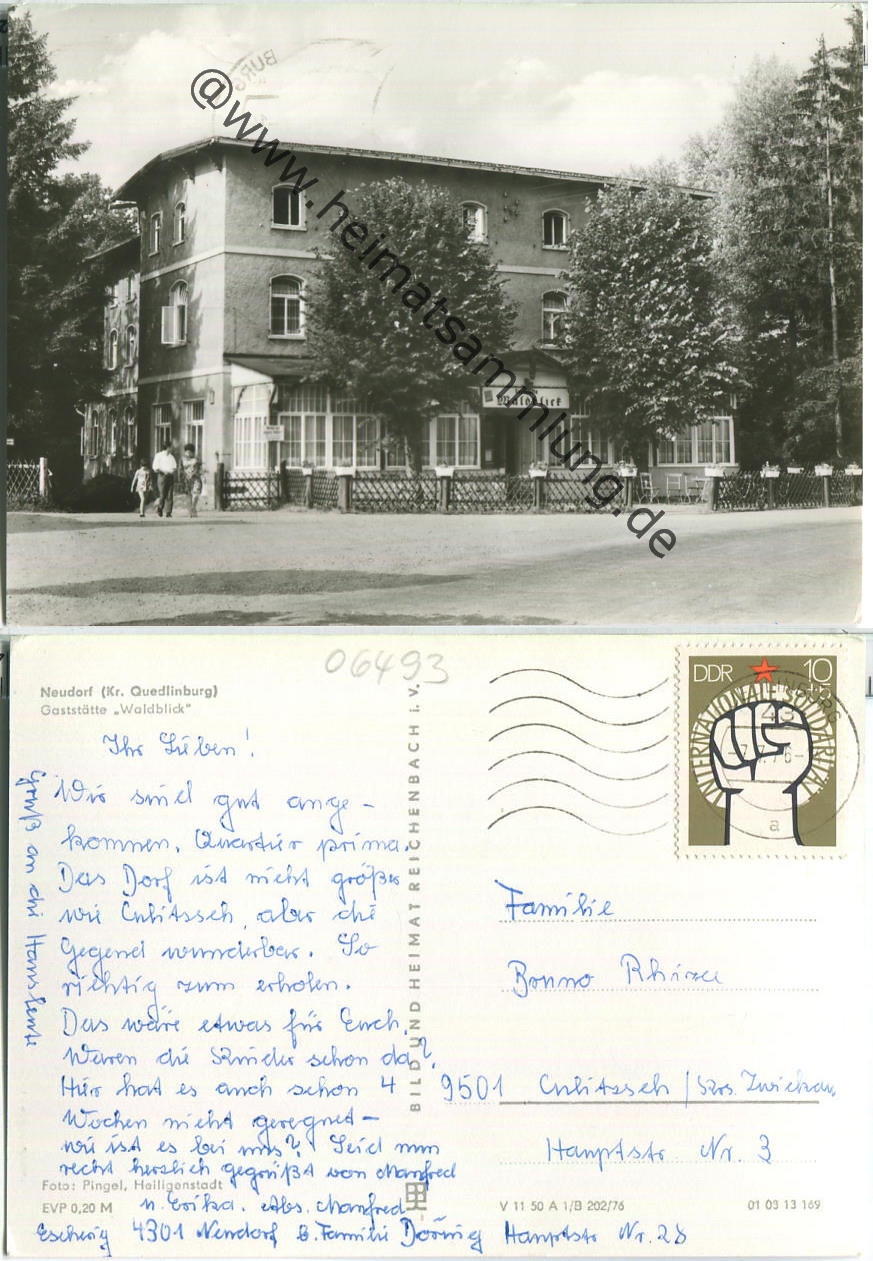 @www.heimatsammlung.de
Waldblick
06493
Neudorf (Kr. Quedlinburg)
Gaststätte „Waldblick"
Ihr Lieben!
Wir sind gut ange-
kommen. Quartier prima.
Das Dorf ist nicht größer
wie Culitzsch, aber die
Gegend wunderbar. So
richtig zum erholen.
Das wäre etwas für Euch.
Waren die Kinder schon da?
Hier hat es auch schon 4
Wochen nicht geregnet-
wie ist es bei uns? Seid nun
recht herzlich gegrüßt von Manfred
u. Erika. Abs. Manfred
Escherig 4301 Neudorf b. Familie Döring Hauptstr Nr. 28
Gruß an die Hausleute
Foto: Pingel, Heiligenstadt
EVP 0,20 M
BILD UND HEIMAT REICHENBACH I. V.
DDR 10
+5
INTERNATIONALE SOLIDARITÄT
43
-7.7.76-
a
Familie
Bruno
9501 Culitzsch / Krs. Zwickau
Hauptstr Nr. 3
V 11 50 A 1/B 202/76
01 03 13 169